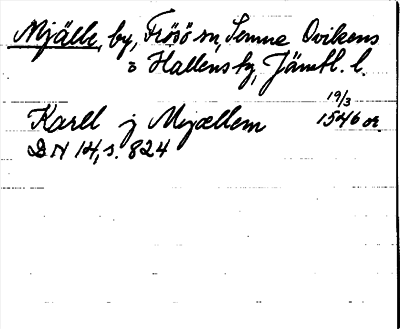 Mjälle, by, Frösö sn, Sunne Ovikens
o Hallens tg, Jämtl. l.
19/3
Karll j Miellem 1546 or.
DN 14, s. 824